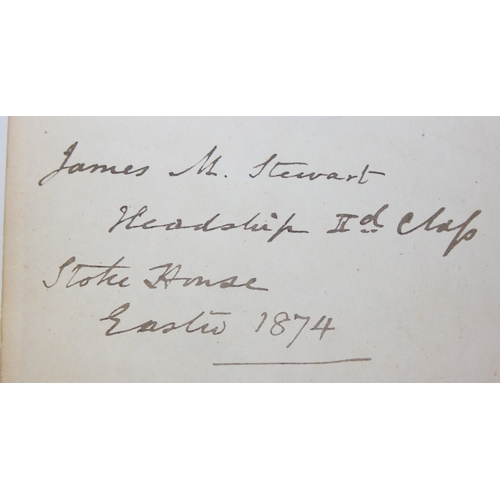 James M. Stewart
Headship IId Class
Stoke House
Easter 1874